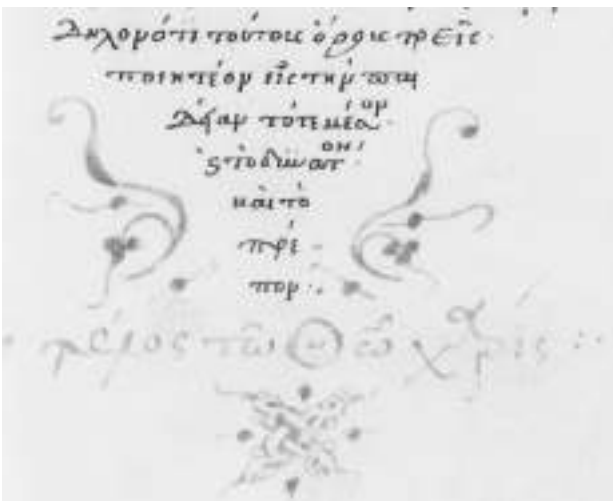 Δηλονότι τούτους ὅρους τρεῖς·
ποιητέον εἰς τὴν παι
δείαν τότε μέσον·
ϗ τὸ δυνατὸν·
καὶ τὸ
πρέ
πον :·
τέλος τῶ Θῶ χάρις :·